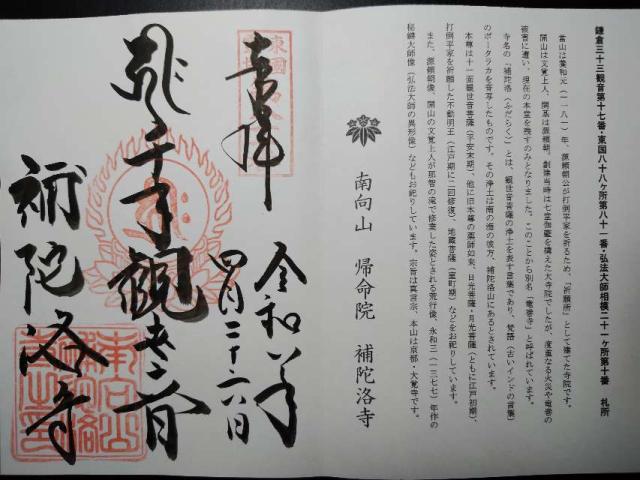 鎌倉三十三観音第十七番・東国八十八ヶ所第八十一番・弘法大師相模二十一ヶ所第十番　札所
当山は養和元（一一八一）年、源頼朝公が打倒平家を祈るため、「祈願所」として建てた寺院です。
開山は文覚上人、開基は源頼朝。創建当時は七堂伽藍を構えた大寺院でしたが、度重なる火災や竜巻の
被害に遭い、現在の本堂を残すのみとなりました。このことから別名「竜巻寺」と呼ばれています。
寺名の「補陀洛（ふだらく）」とは、観世音菩薩の浄土を表す言葉であり、梵語（古いインドの言葉）
のポータラカを音写したものです。その浄土は南の海の彼方、補陀洛山にあるとされています。
本尊は十一面観世音菩薩（平安末期）、他に旧本尊の薬師如来、日光菩薩・月光菩薩（ともに江戸初期）、
打倒平家を祈願した不動明王（江戸期に二回修復）、地蔵菩薩（室町期）などをお祀りしています。
また、源頼朝像、開山の文覚上人が那智の滝で修業した姿とされる荒行像、永和三（一三七七）年作の
秘鍵大師像（弘法大師の異形像）などもお祀りしています。宗旨は真言宗、本山は京都・大覚寺です。
南向山　帰命院　補陀洛寺
奉拝　令和
四月二十六日
千手観世音
補陀洛寺